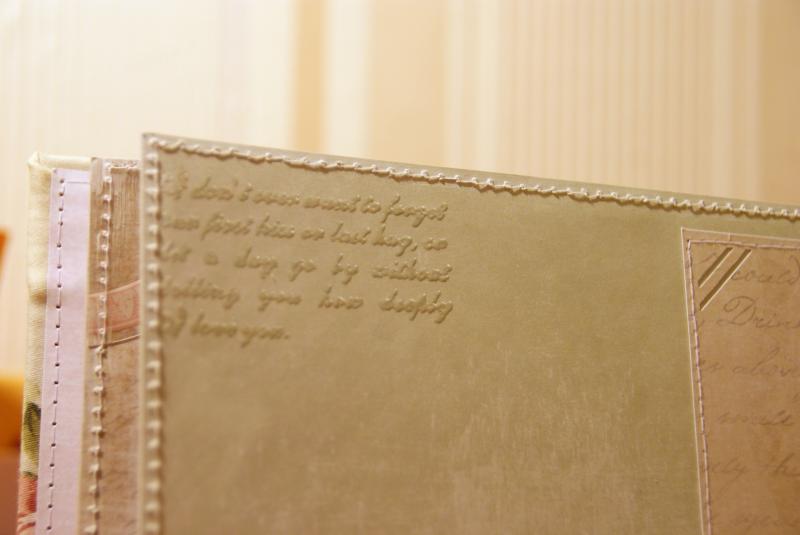 I don't ever want to forget
our first kiss or last hug, or
let a day go by without
telling you how deeply
I love you.
would
Drin
above